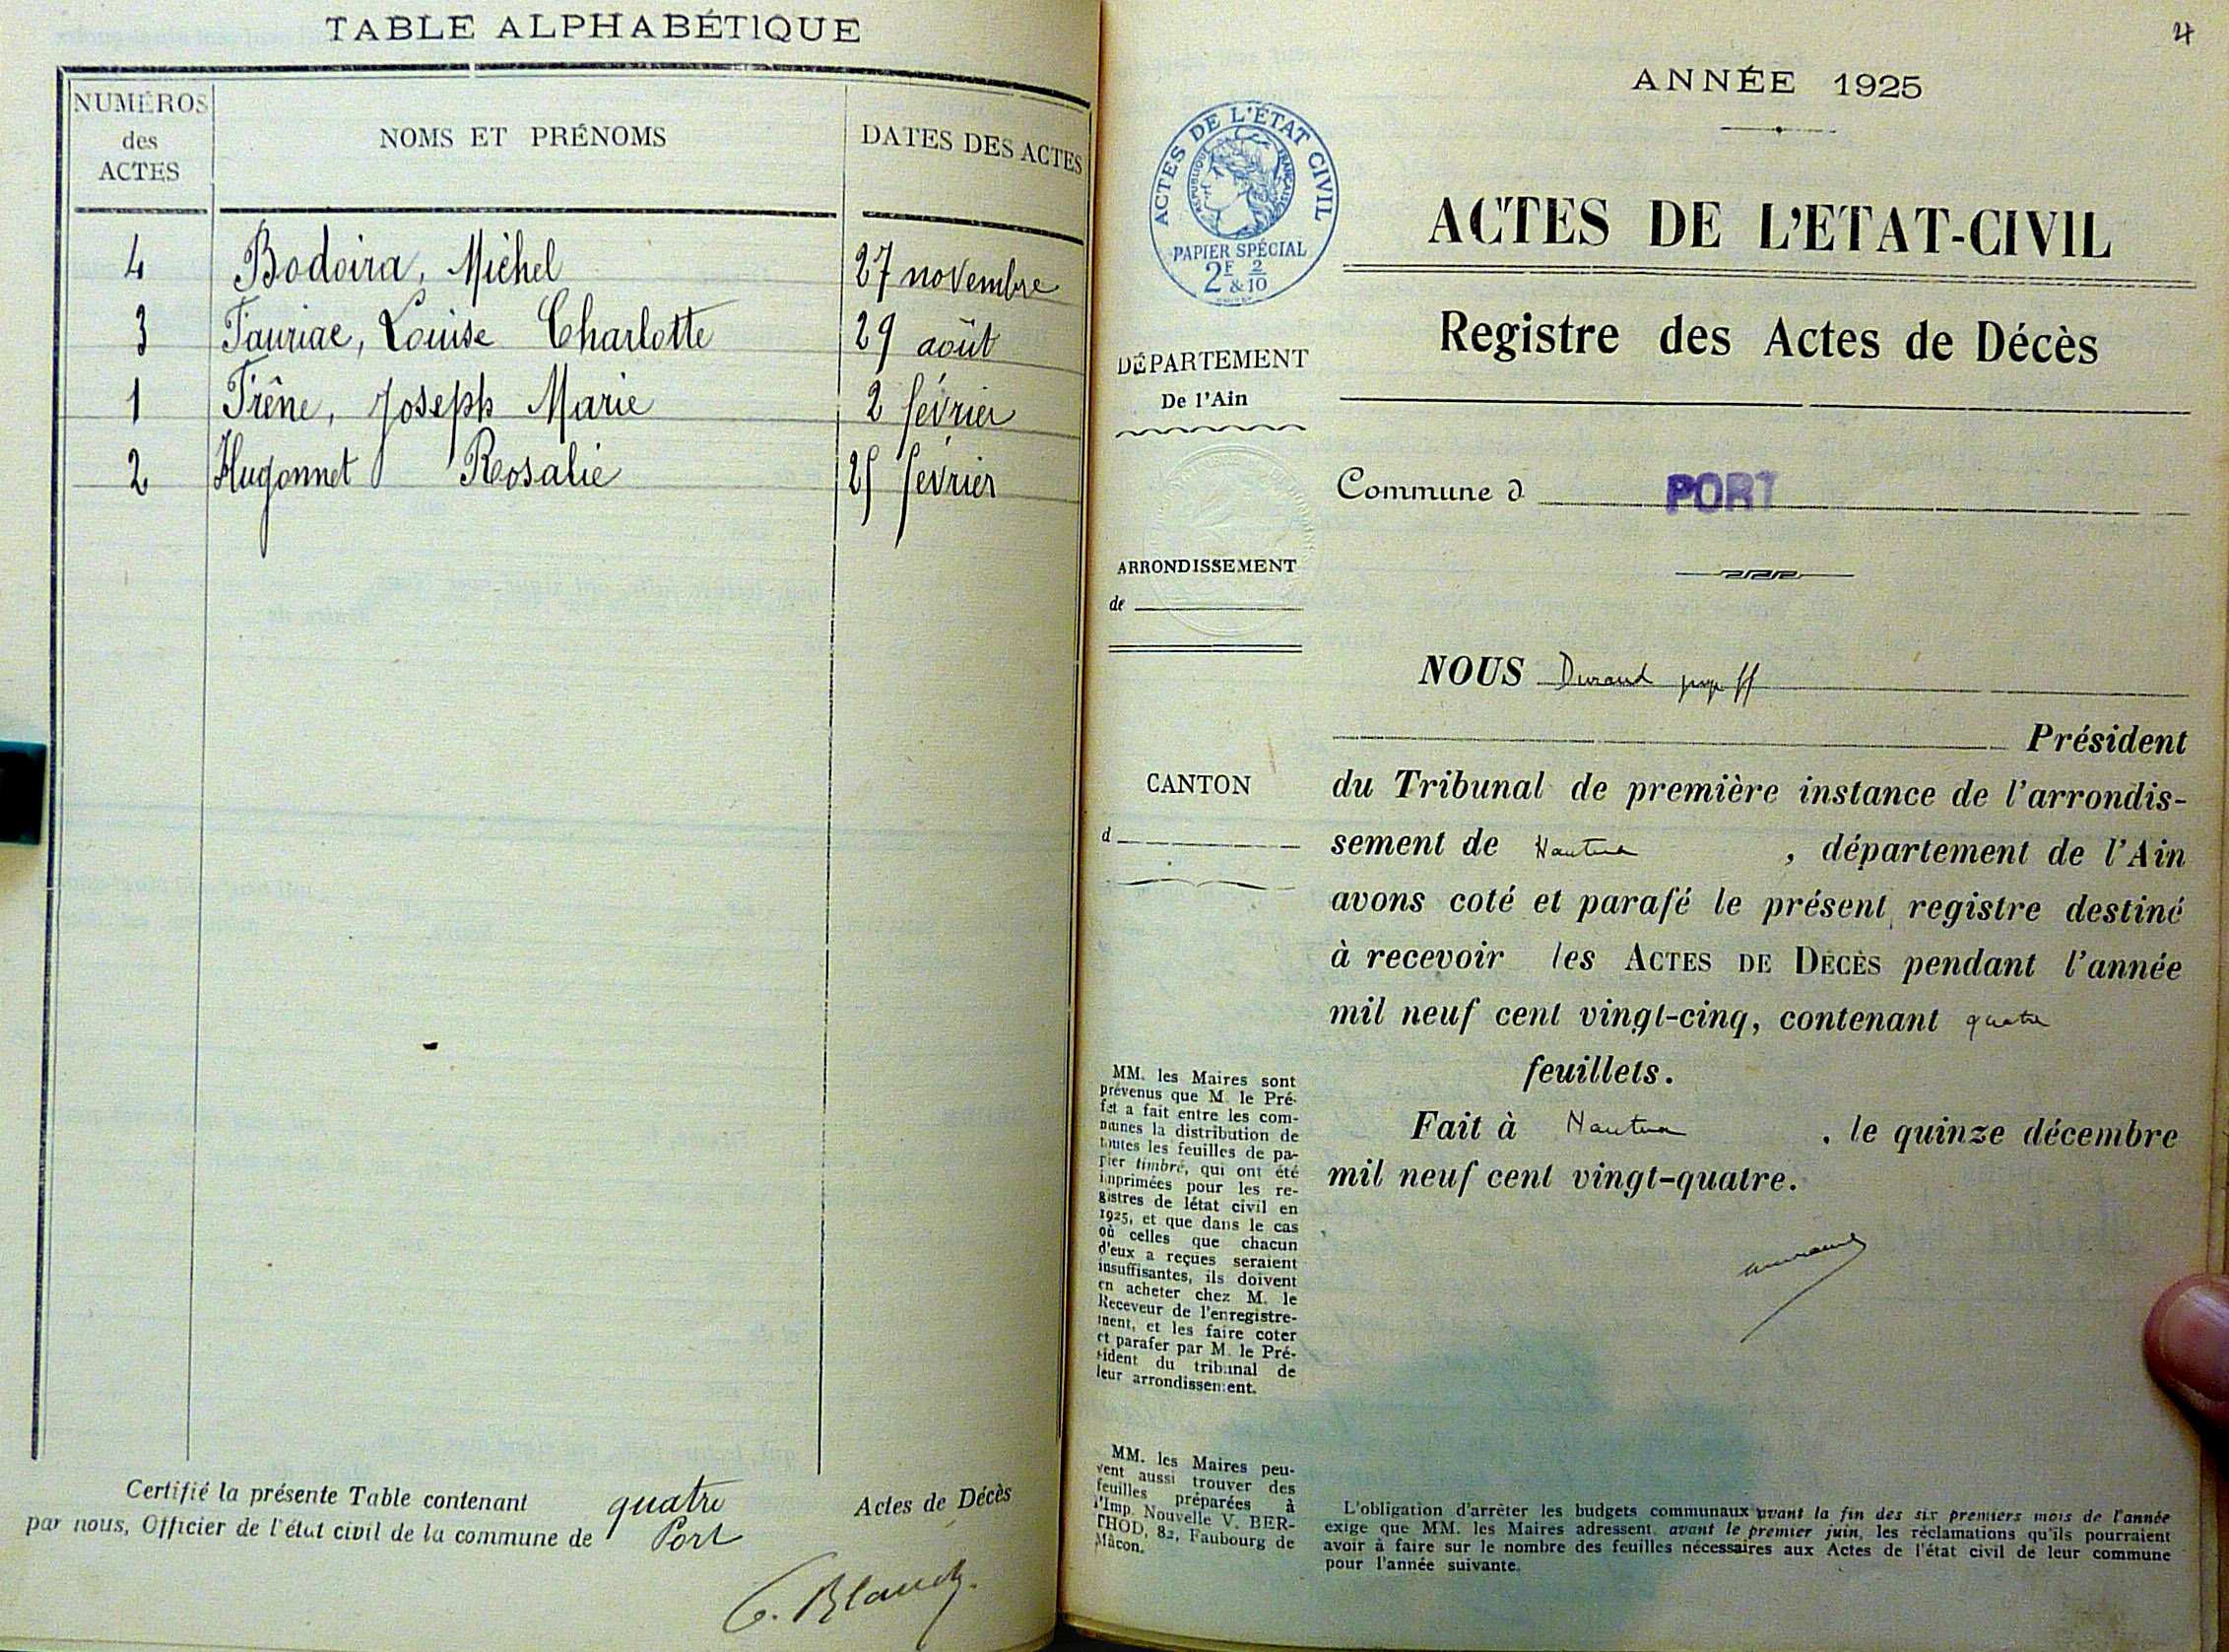 TABLE ALPHABÉTIQUE
NUMÉROS
des
ACTES
NOMS ET PRÉNOMS
DATES DES ACTES
4 Bodoira, Michel 27 novembre
3 Fauriac, Louise Charlotte 29 août
1 Frêne, Joseph Marie 2 février
2 Hugonnet Rosalie 25 février
Certifié la présente Table contenant quatre Actes de Décès
par nous, Officier de l'état civil de la commune de Port
4
ANNÉE 1925
ACTES DE L'ÉTAT CIVIL
RÉPUBLIQUE FRANÇAISE
PAPIER SPÉCIAL
2F 2
& 10
ACTES DE L'ETAT-CIVIL
Registre des Actes de Décès
DÉPARTEMENT
De l'Ain
Commune d PORT
ARRONDISSEMENT
de
NOUS Durand
Président
CANTON
d
du Tribunal de première instance de l'arrondis-
sement de Nantua , département de l'Ain
avons coté et parafé le présent registre destiné
à recevoir les ACTES DE DÉCÈS pendant l'année
mil neuf cent vingt-cinq, contenant quatre
feuillets.
Fait à Nantua , le quinze décembre
mil neuf cent vingt-quatre.
MM. les Maires sont
prévenus que M. le Pré-
fet a fait entre les com-
munes la distribution de
toutes les feuilles de pa-
pier timbré, qui ont été
imprimées pour les re-
gistres de létat civil en
1925, et que dans le cas
où celles que chacun
d'eux a reçues seraient
insuffisantes, ils doivent
en acheter chez M. le
Receveur de l'enregistre-
ment, et les faire coter
et parafer par M. le Pré-
sident du tribunal de
leur arrondissement.
MM. les Maires peu-
vent aussi trouver des
feuilles préparées à
l'Imp. Nouvelle V. BER-
THOD, 82, Faubourg de
Mâcon.
L'obligation d'arrêter les budgets communaux avant la fin des six premiers mois de l'année
exige que MM. les Maires adressent, avant le premier juin, les réclamations qu'ils pourraient
avoir à faire sur le nombre des feuilles nécessaires aux Actes de l'état civil de leur commune
pour l'année suivante.